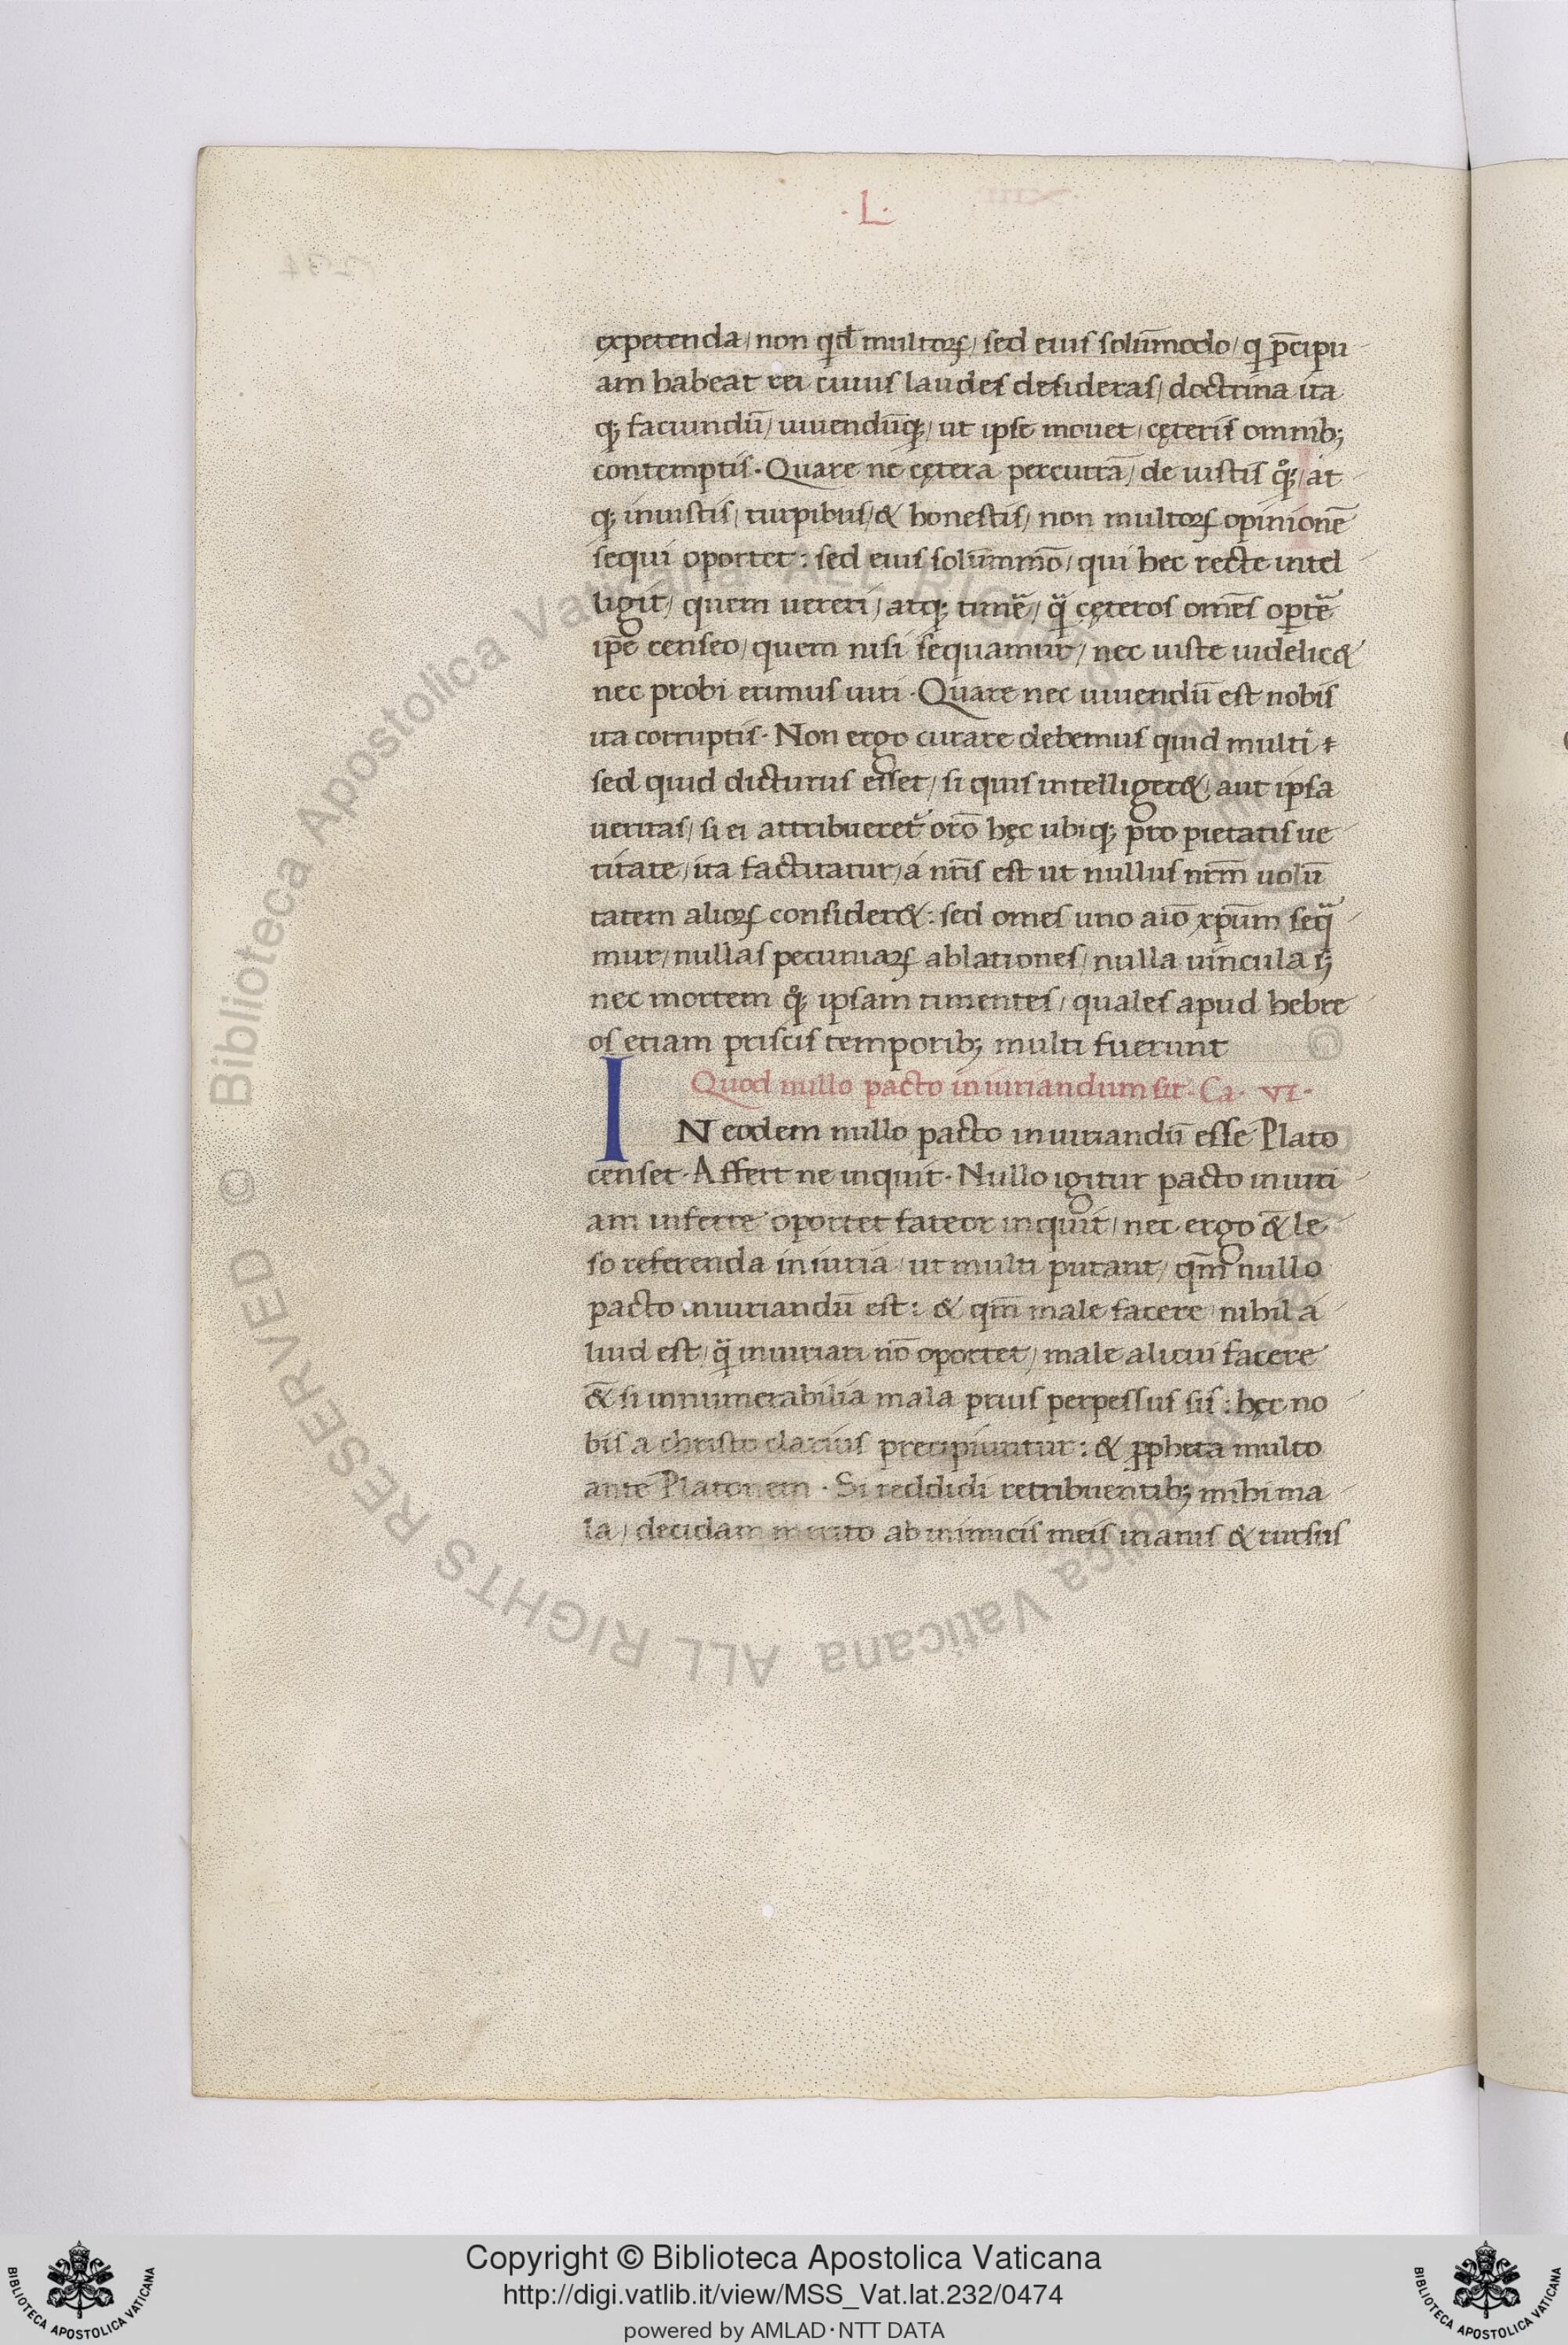 ·L·
expetenda/ non qd̄ multoꝝ/ sed eius solūmodo/ q p̄cipu
am habeat rei cuius laudes desideras/ doctrina ita
q; faciundū/ uiuendūq;/ ut ipse mouet/ cęteris omnib;
contemptis· Quare ne cętera percurrā/ de iustis qͦ;/ at
q; iniustis/ turpibus/ & honestis/ non multoꝝ opinionē
sequi oportet: sed eius solummō/ qui hec recte intel
ligit/ quem uereri/ atq; timē/ q̄ cęteros omēs oportē
ipē censeo/ quem nisi sequamur/ nec iuste uidelic&
nec probi erimus uiri· Quare nec uiuendū est nobis
ita corruptis· Non ergo curare debemus quid multi ÷
sed quid dicturus esset/ si quis intelliger&/ aut ipsa
ueritas/ si ei attribueret᷑ orō hęc ubiq; pro pietatis ue
ritate/ ita factitatur/ á nr̄is est ut nullus nr̄m uolū
tatem alioꝝ consider&: sed omēs uno aīo xp̄um seq̄
mur/ nullas pecuniaꝝ ablationes/ nulla uincula s;
nec mortem qͦ; ipsam timentes/ quales apud hebre
os etiam priscis temporib; multi fuerunt
Quod nullo pacto iniuriandum sit· Ca· VI·
IN eodem nullo pacto iniuriandū esse Plato
censet· Affert ne inquit· Nullo igitur pacto iniuri
am inferre oportet fateor inquit/ nec ergo &̄ le
so referenda iniuria/ ut multi putant/ qm̄ nullo
pacto iniuriandū est: & qm̄ male facere nihil a
liud est/ q̄ iniuriari nō oportet/ male alicui facere
&̄ si innumerabilia mala prius perpessus sis: hęc no
bis a christo clarius precipiuntur: & ꝓpheta multo
ante Platonem· Si reddidi retribuentib; mihi ma
la/ decidam merito ab inimicis meis inanis & rursus
Biblioteca Apostolica Vaticana ALL RIGHTS RESERVED ©
Copyright © Biblioteca Apostolica Vaticana
http://digi.vatlib.it/view/MSS_Vat.lat.232/0474
powered by AMLAD·NTT DATA
BIBLIOTECA APOSTOLICA VATICANA
BIBLIOTECA APOSTOLICA VATICANA